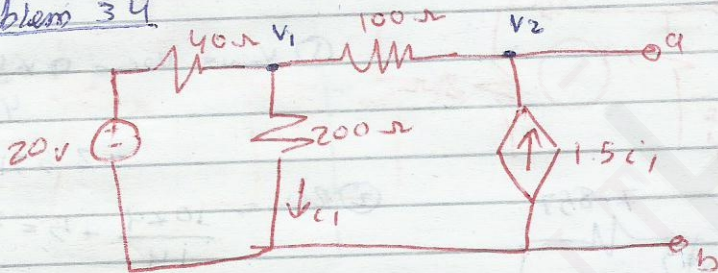 blem 34
40Ω V1 100Ω V2
a
20v + - 200Ω 1.5i1
i1
b